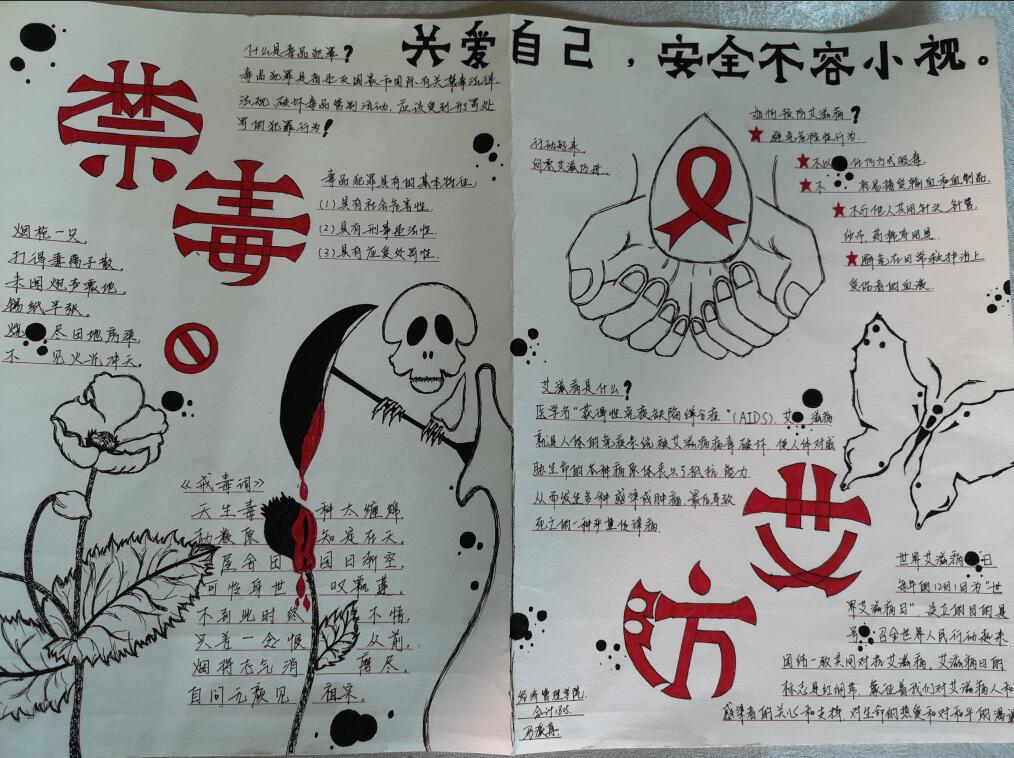 关爱自己，安全不容小视。
禁毒
什么是毒品犯罪？
毒品犯罪是指违反国家和国际有关禁毒法律
法规、破坏毒品管制活动，应该受到刑罚处
罚的犯罪行为！
毒品犯罪具有的基本特征：
(1)具有社会危害性.
(2)具有刑事违法性.
(3)具有应受处罚性.
烟枪一只，
打得妻离子散，
未闻炮声震地，
锡纸半张，
烧尽田地房梁，
不见火光冲天。
《戒毒词》
天生毒种太缠绵
劫数原知定在天，
屋分田国日渐空，
可怜身世叹飘蓬，
不到此时终不悟，
只差一念恨从前，
烟将志气消磨尽，
自问无颜见祖宗。
行动起来，
向零艾滋迈进.
如何预防艾滋病？
★避免危险性行为.
★不以任何方式吸毒，
★不轻易接受输血和血制品.
★不与他人共用针头、针管、
纱布、药棉等用具.
★避免在日常救护沾上
受伤者的血液.
艾滋病是什么？
医学名“获得性免疫缺陷综合症”(AIDS)，艾滋病
就是人体的免疫系统被艾滋病病毒破坏，使人体对威
胁生命的各种病原体丧失了抵抗能力，
从而发生多种感染或肿瘤，最后导致
死亡的一种严重传染病.
防艾
世界艾滋病日
每年的12月1日为“世
界艾滋病日”，设立的目的是
号召全世界人民行动起来
团结一致共同对抗艾滋病，艾滋病日的
标志是红绸带，象征着我们对艾滋病人和
感染者的关心和支持，对生命的热爱和对和平的渴望
经济管理学院